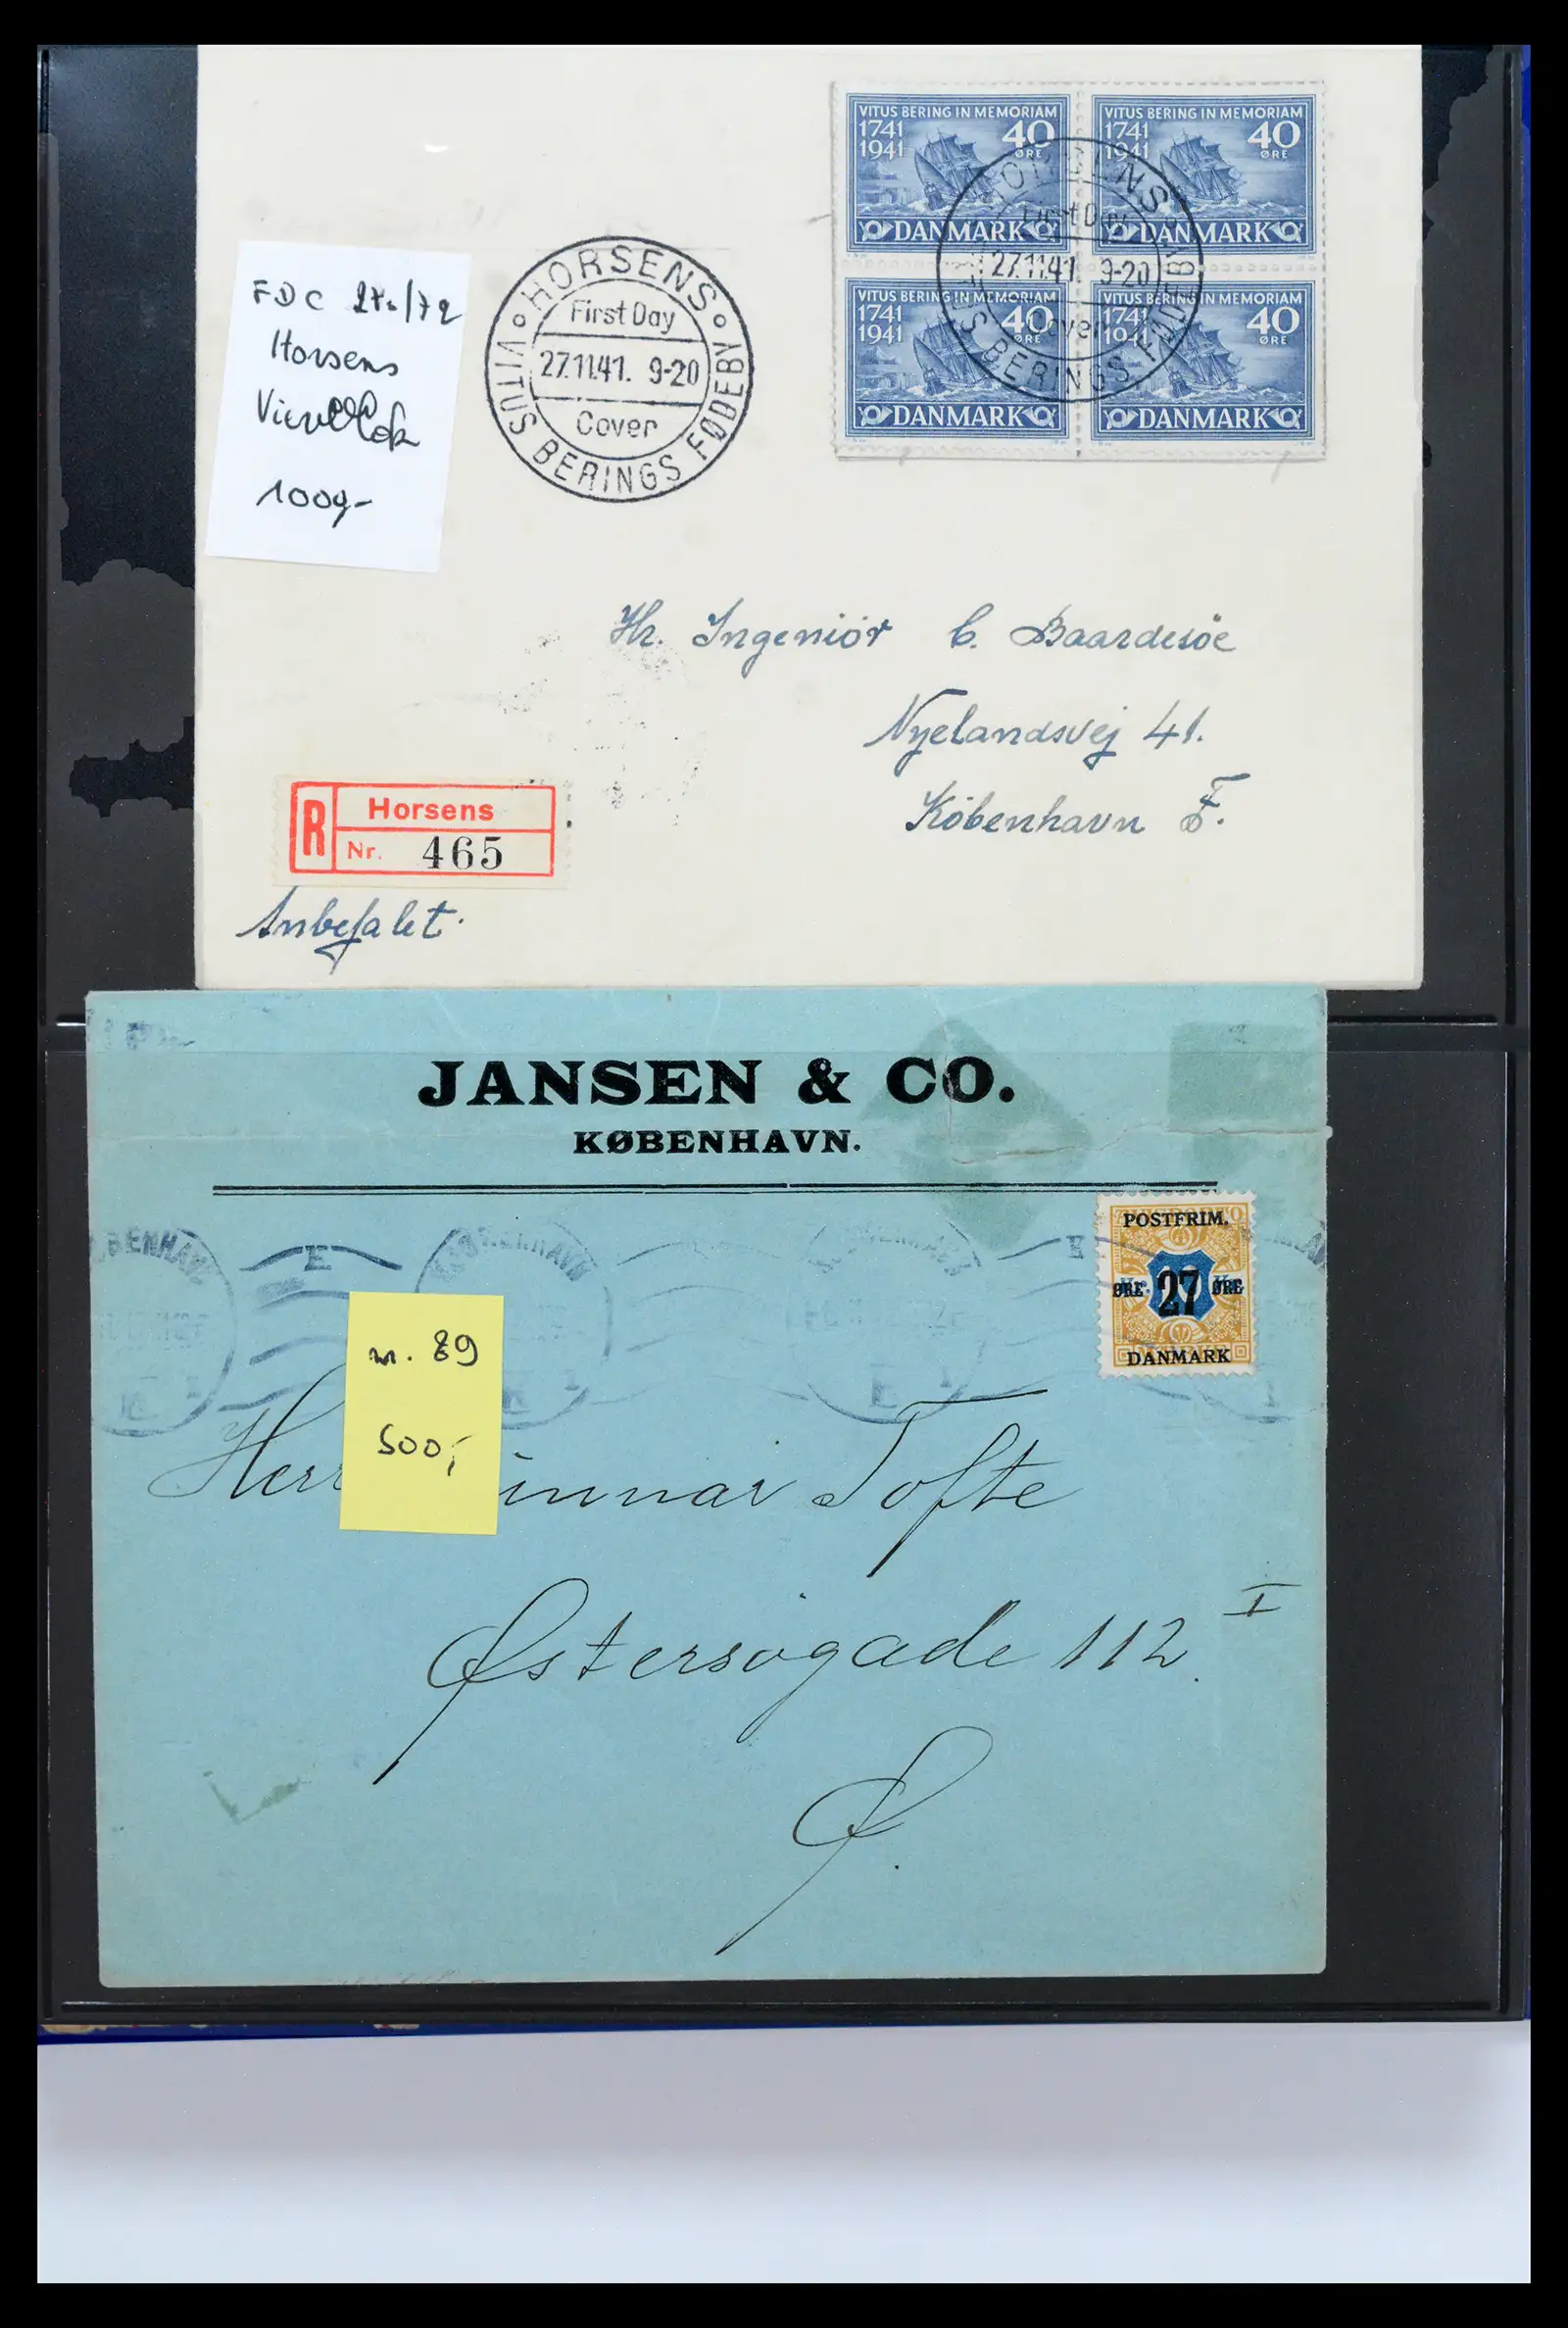 VITUS BERING IN MEMORIAM
1741
1941
40
ØRE
DANMARK
VITUS BERING IN MEMORIAM
1741
1941
40
ØRE
DANMARK
VITUS BERING IN MEMORIAM
1741
1941
40
ØRE
DANMARK
VITUS BERING IN MEMORIAM
1741
1941
40
ØRE
DANMARK
HORSENS
First Day
27.11.41. 9-20
Cover
VITUS BERINGS FØDEBY
HORSENS
First Day
27.11.41 9-20
Cover
VITUS BERINGS FØDEBY
FDC
Horsens
Viererblok
Hr. Ingeniör C. Baardesöe
Nyelandsvej 41.
København F.
R
Horsens
Nr. 465
Anbefalet.
JANSEN & CO.
KØBENHAVN.
KØBENHAVN
E
KØBENHAVN
E
POSTFRIM.
ØRE 27 ØRE
DANMARK
nr. 89
500,-
Herr Tofte
Østersøgade 112 I
Ø.